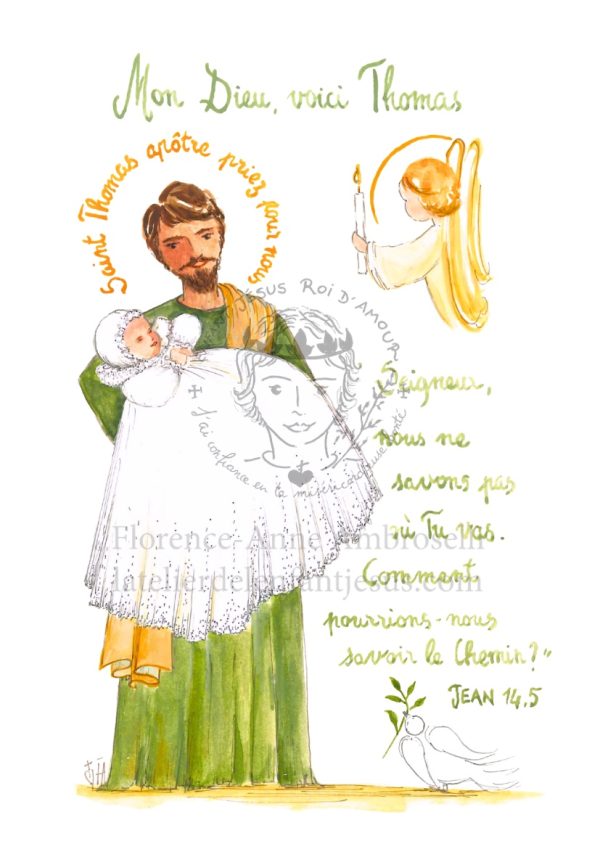 Mon Dieu, voici Thomas
Saint Thomas apôtre priez pour nous
JÉSUS ROI D'AMOUR
J'ai confiance en ta miséricordieuse bonté
Seigneur,
nous ne
savons pas
où Tu vas.
Comment
pourrions-nous
savoir le Chemin?"
JEAN 14,5
Florence-Anne Ambroselli
latelierdelenfantjesus.com